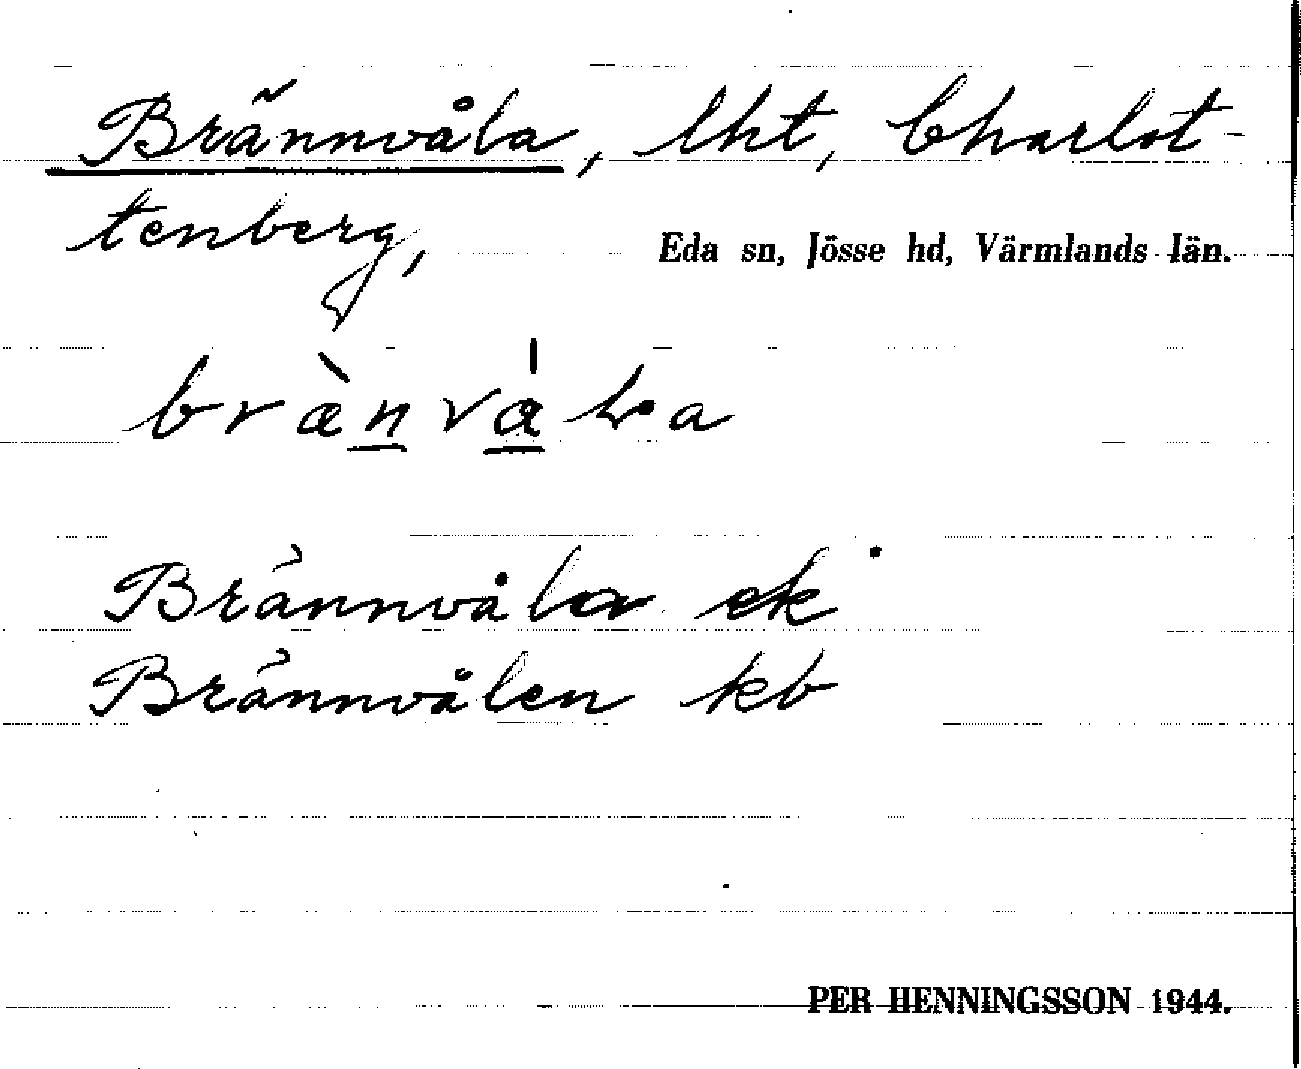 Brännvåla, lht, Charlot-
tenberg,
Eda sn, Jösse hd, Värmlands län.
Brännvåla ek
Brännvålen kb
PER HENNINGSSON 1944.